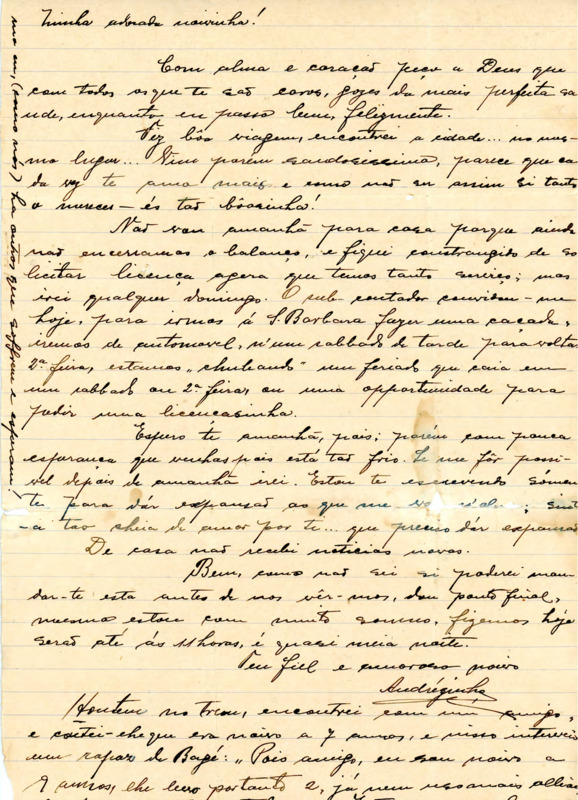 Minha adorada noivinha!
Com alma e coração peço a Deus que
com todos os que te são caros, gozes da mais perfeita sa
ude, enquanto eu passo bem, felizmente.
Fiz bôa viagem, encontrei a cidade... no mes-
mo lugar... Vim porém saudosissimo, parece que ca-
da vez te amo mais e como não ser assim si tanto
o mereces - és tão bôasinha!
Não vou amanhã para casa porque ainda
não encerramos o balanço, e fiquei constrangido de so
licitar licença agora que temos tanto serviço; mas
irei qualquer domingo. O sub-contador convidou-me
hoje, para irmos á S. Barbara fazer uma caçada,
iremos de automovel, n'um sabbado de tarde para voltar
2ª feira, estamos "chuleando" um feriado que caia em
um sabbado ou 2ª feira, ou uma opportunidade para
pedir uma licencasinha.
Espero te amanhã, pois; porém com pouca
esperança que venhas pois está tão frio. Se me fôr possi-
vel depois de amanhã irei. Estou te escrevendo sómen
te para dár expansão ao que me
-a tao cheia de amor por ti... que preciso dár expansão
De casa não recebi noticias novas.
Bem, como não sei si poderei man-
dar-te esta antes de nos vêr-mos, dou ponto final,
mesmo estou com muito somno, fizemos hoje
serão até ás 11 horas, é quasi meia noite.
Teu fiel e amoroso noivo
Andrézinho
Hontem no trem, encontrei com um amigo,
e contei-lhe que era noivo a 7 annos, e nisso interveio
um rapaz de Bagé: "Pois amigo, eu sou noivo a
9 annos, lhe levo portanto 2, já nem uso mais allian
mo eu, (como nós) ha outros que soffrem e esperam!